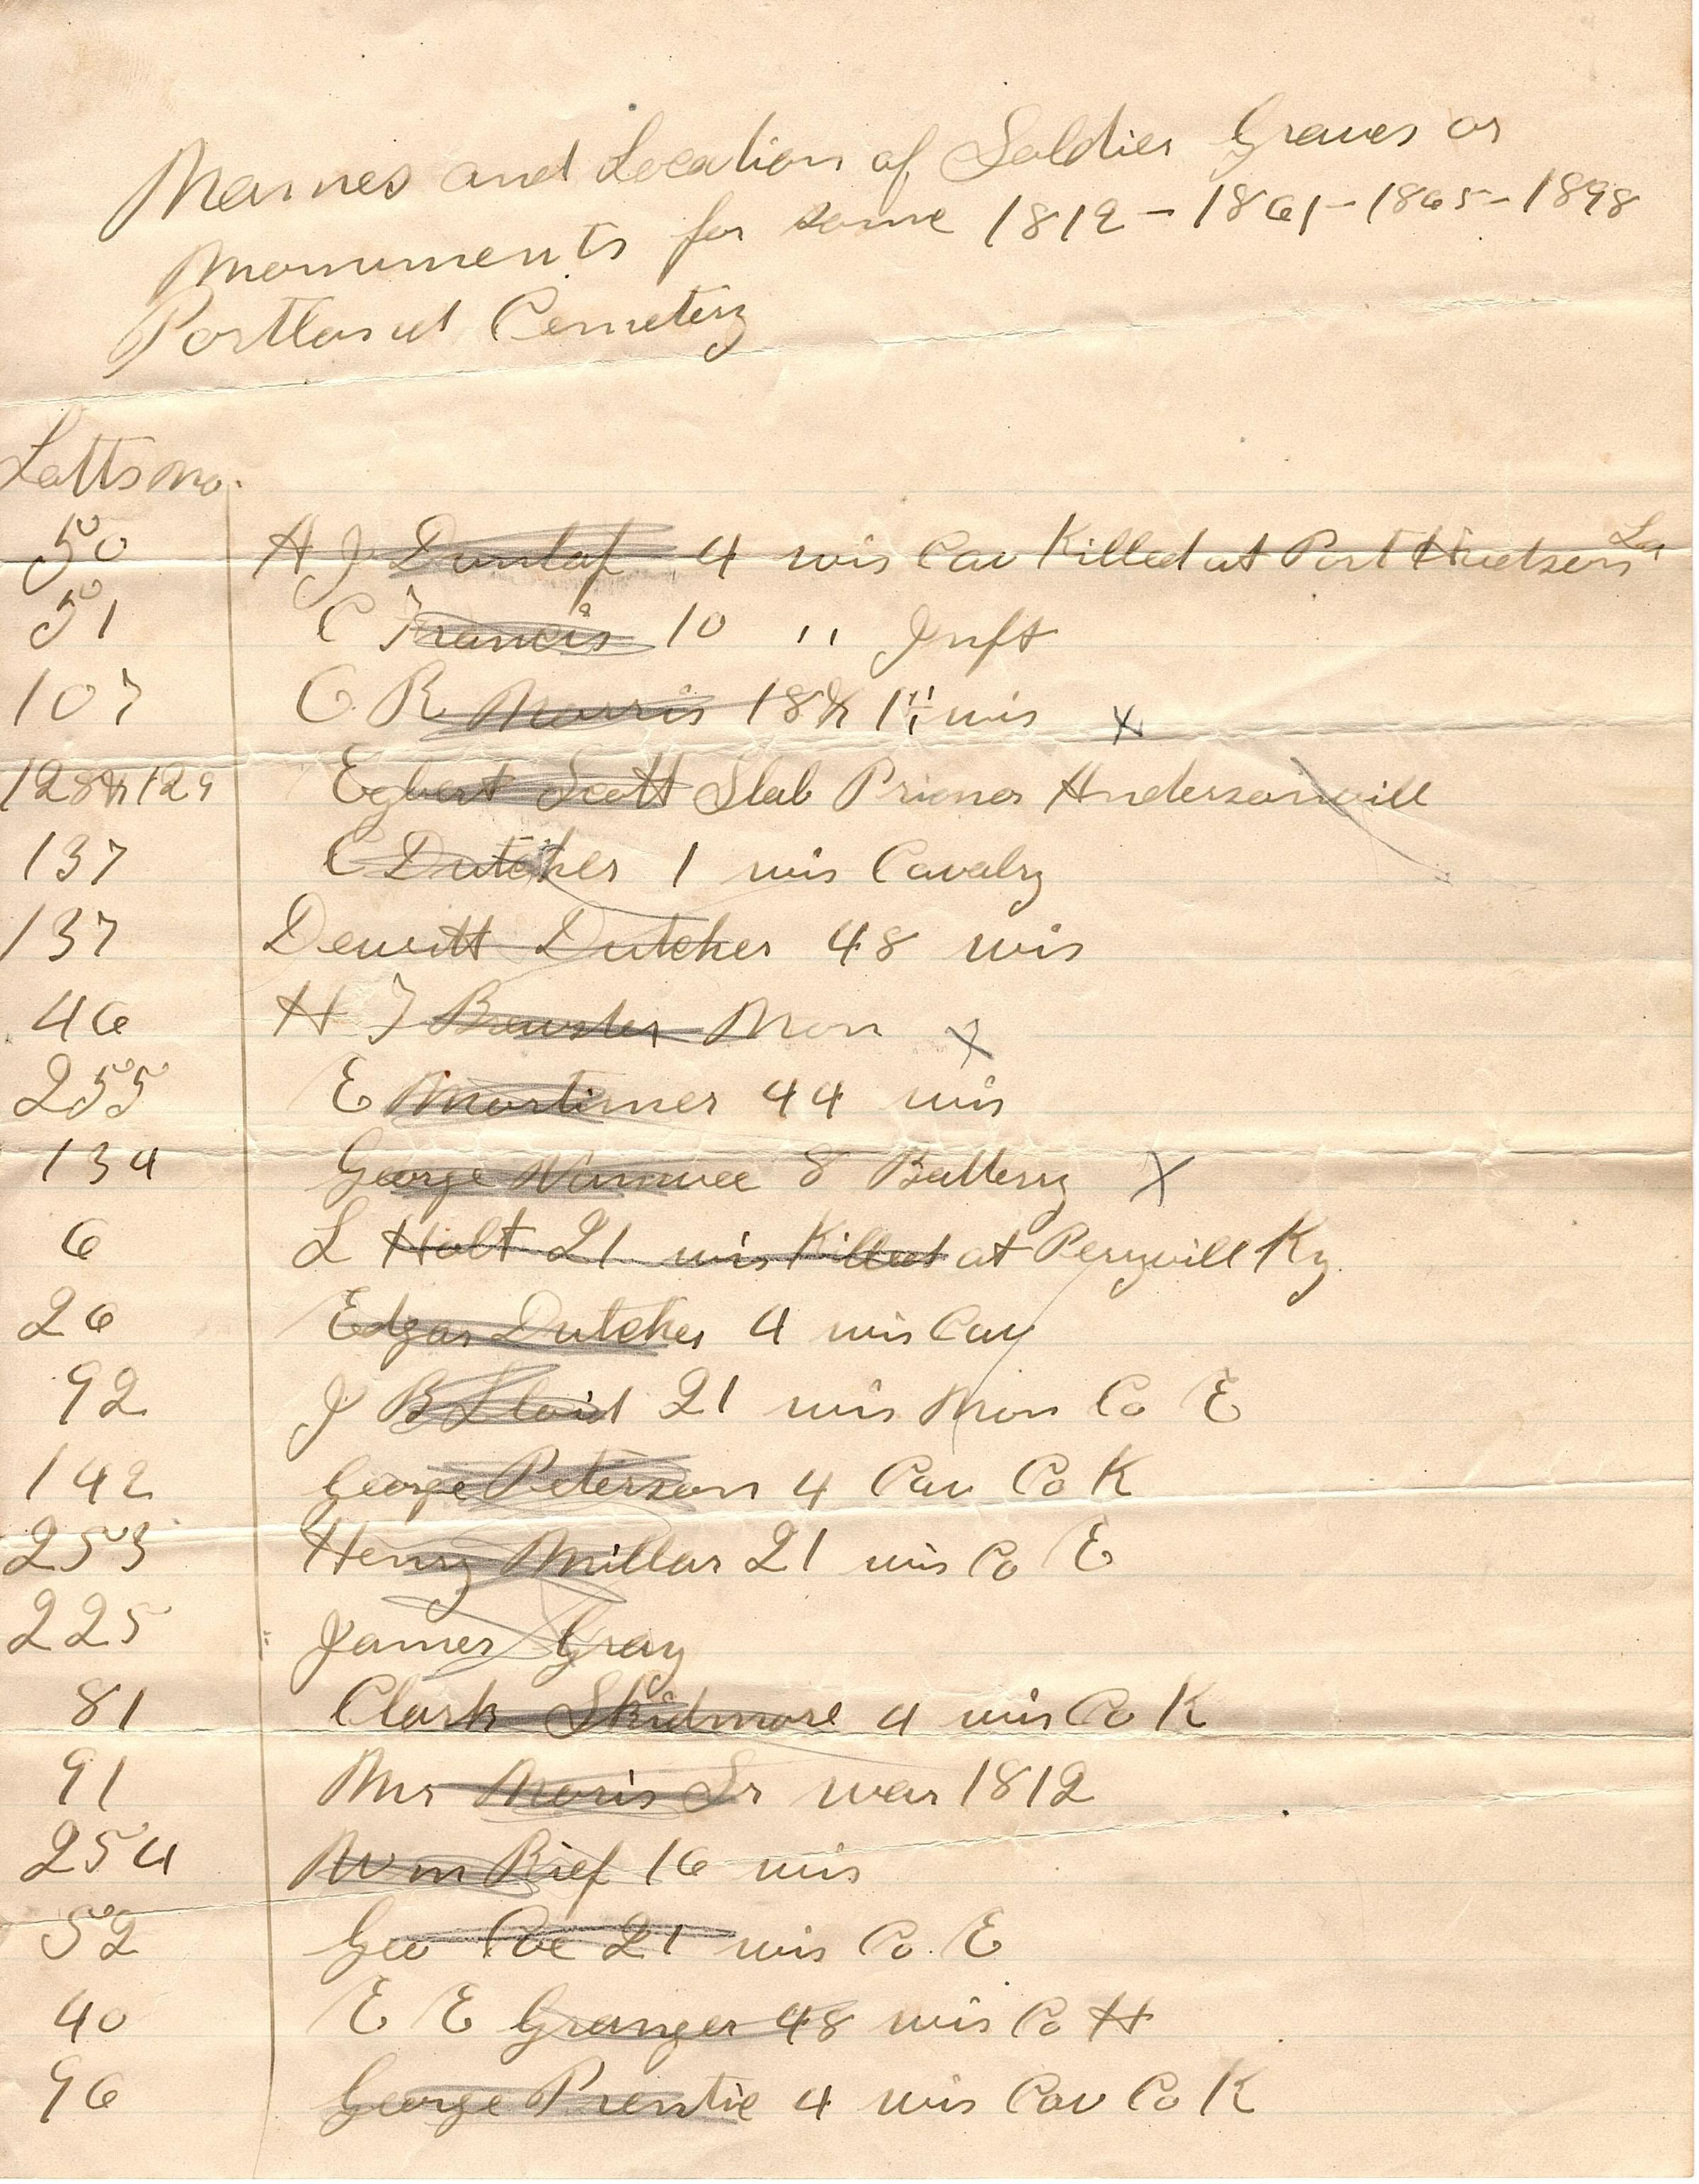 Names and Location of Soldier Graves or
Monuments for some 1812 - 1861 - 1865 - 1898
Portland Cemetery
Lotts no.
50 A J Dunlap 4 wis Cav Killed at Port Hudson La
51 C Francis 10 " Inft
107 C R Morris 18th 11 wis x
128 & 129 Egbert Scott Slab Prisner Andersonvill
137 C Dutcher 1 wis Cavalry
137 Dewitt Dutcher 48 wis
46 H F Brewster Mon x
255 E Mortimer 44 wis
134 George 8 Battery X
6 L Holt 21 wis Killed at Peryvill Ky.
26 Edgar Dutcher 4 wis Cav
92 J B Lloid 21 wis Mon Co E
142 George Peterson 4 Cav Co K
253 Henry Millar 21 wis Co E
225 James Gray
81 Clark Skidmore 4 wis Co K
91 Mr Moris Sr war 1812
254 Wm Rief 16 wis
52 Geo Coe 21 wis Co. E
40 E E Granger 48 wis Co H
96 George Prentie 4 wis Cav Co K